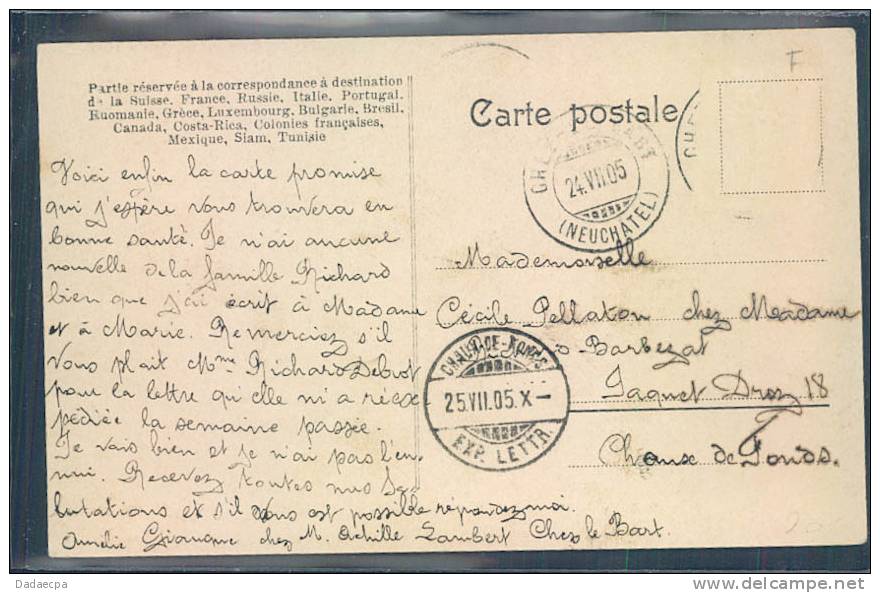 Partie réservée à la correspondance à destination
de la Suisse, France, Russie, Italie, Portugal,
Roumanie, Grèce, Luxembourg, Bulgarie, Bresil,
Canada, Costa-Rica, Colonies françaises,
Mexique, Siam, Tunisie
Carte postale
F
24.VII.05
(NEUCHATEL)
Voici enfin la carte promise
qui j'espère vous trouvera en
bonne santé. Je n'ai aucune
nouvelle de la famille Richard
bien que j'ai écrit à Madame
et à Marie. Remerciez s'il
vous plait Mme Richard Debrot
pour la lettre qu'elle m'a réex
pédiée la semaine passée.
Je vais bien et je n'ai pas l'en
nui. Recevez toutes mes Sa
lutations et s'il vous est possible répondez moi.
Amélie Giauque chez M. Achille Lambert Chez le Bart.
Mademoiselle
Cécile Pellaton chez Madame
Barbezat
Jaquet Droz 18
Chaux de Fonds.
CHAUX-DE-FONDS
25.VII.05.X–
EXP. LETTR.
Dadaecpa
http://www.delcampe.net